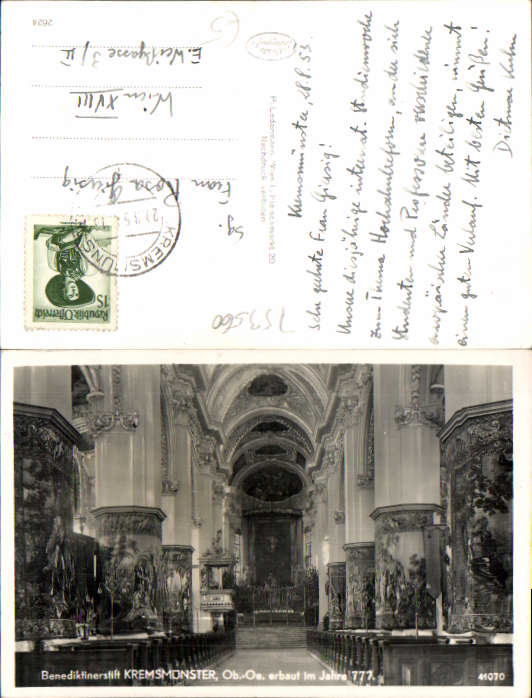 Kremsmünster, 18.8.53.
Sehr geehrte Frau Giesig!
Unsere diesjährige internat. Studienwoche
zum Thema Hochschulreform, an der sich
Studenten und Professoren verschiedener
europäischer Länder beteiligen, nimmt
einen guten Verlauf. Mit besten Grüßen!
Dietmar
P. Ledermann, Wien I, Fleischmarkt 20
Nachdruck verboten
Sg.
Frau Rosa Giesig
Wien XVIII
E. Weißgasse 3/II
2624
KREMSMÜNSTER
1S
Republik Österreich
753560
Benediktinerstift KREMSMÜNSTER, Ob.-Oe. erbaut im Jahre 777.
41070